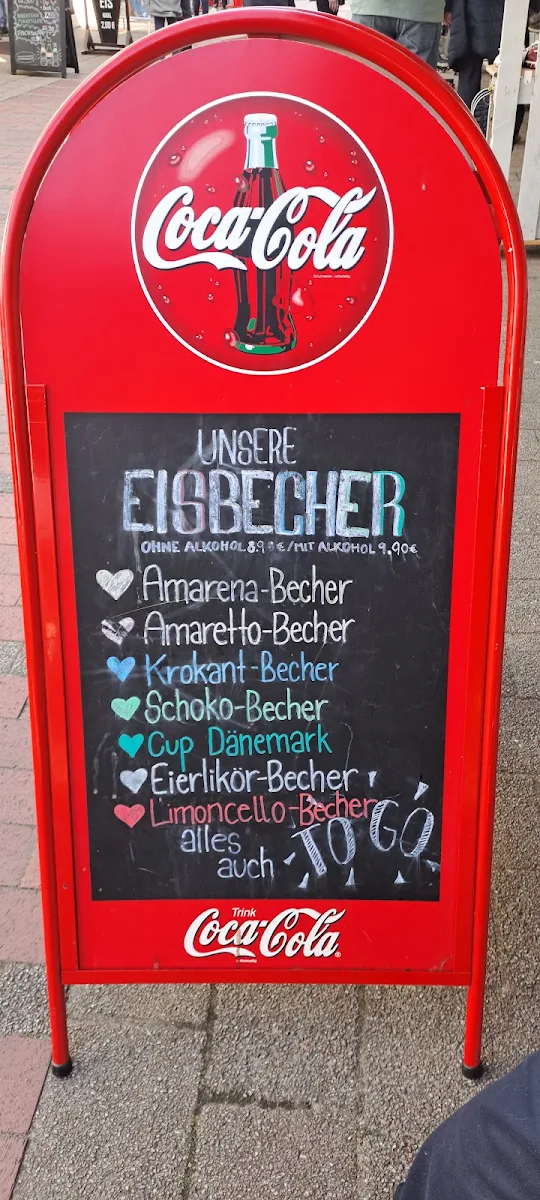 EIS
2,00 €
Coca-Cola
UNSERE
EISBECHER
OHNE ALKOHOL 8,90€/MIT ALKOHOL 9,90€
Amarena-Becher
Amaretto-Becher
Krokant-Becher
Schoko-Becher
Cup Dänemark
Eierlikör-Becher
Limoncello-Becher
alles
auch TO GO
Trink
Coca-Cola